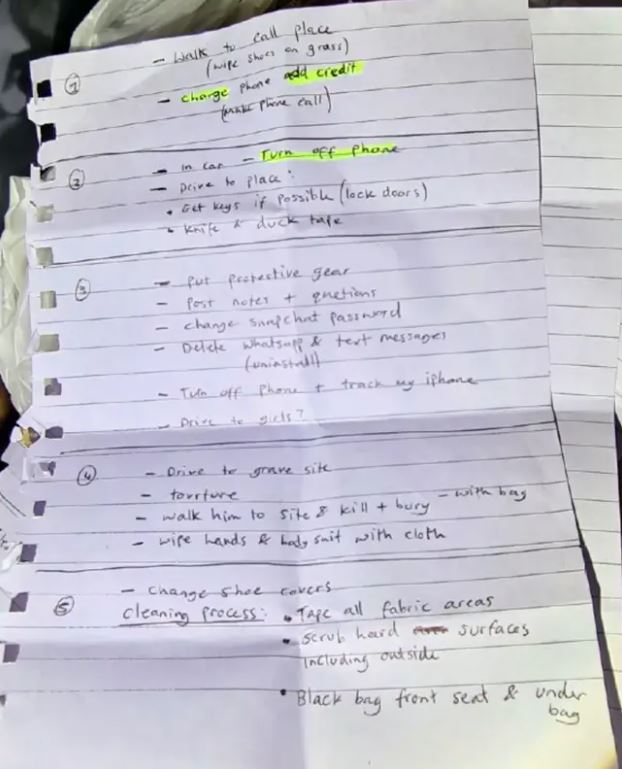 ① - Walk to call place
(wipe shoes on grass)
- charge phone add credit
(make phone call)
② - In car - Turn off phone
- Drive to place:
• Get keys if possible (lock doors)
• Knife & duck tape
③ - Put protective gear
- Post notes + quetions
- change snapchat password
- Delete whatsapp & text messages
(uninstall)
- Turn off phone + track my iphone
- Drive to girls?
④ - Drive to grave site
- tourture
- walk him to site & kill + bury - with bag
- wipe hands & body suit with cloth
⑤ - Change shoe covers
Cleaning process: • Tape all fabric areas
• Scrub hard surfaces
including outside
• Black bag front seat & under
bag